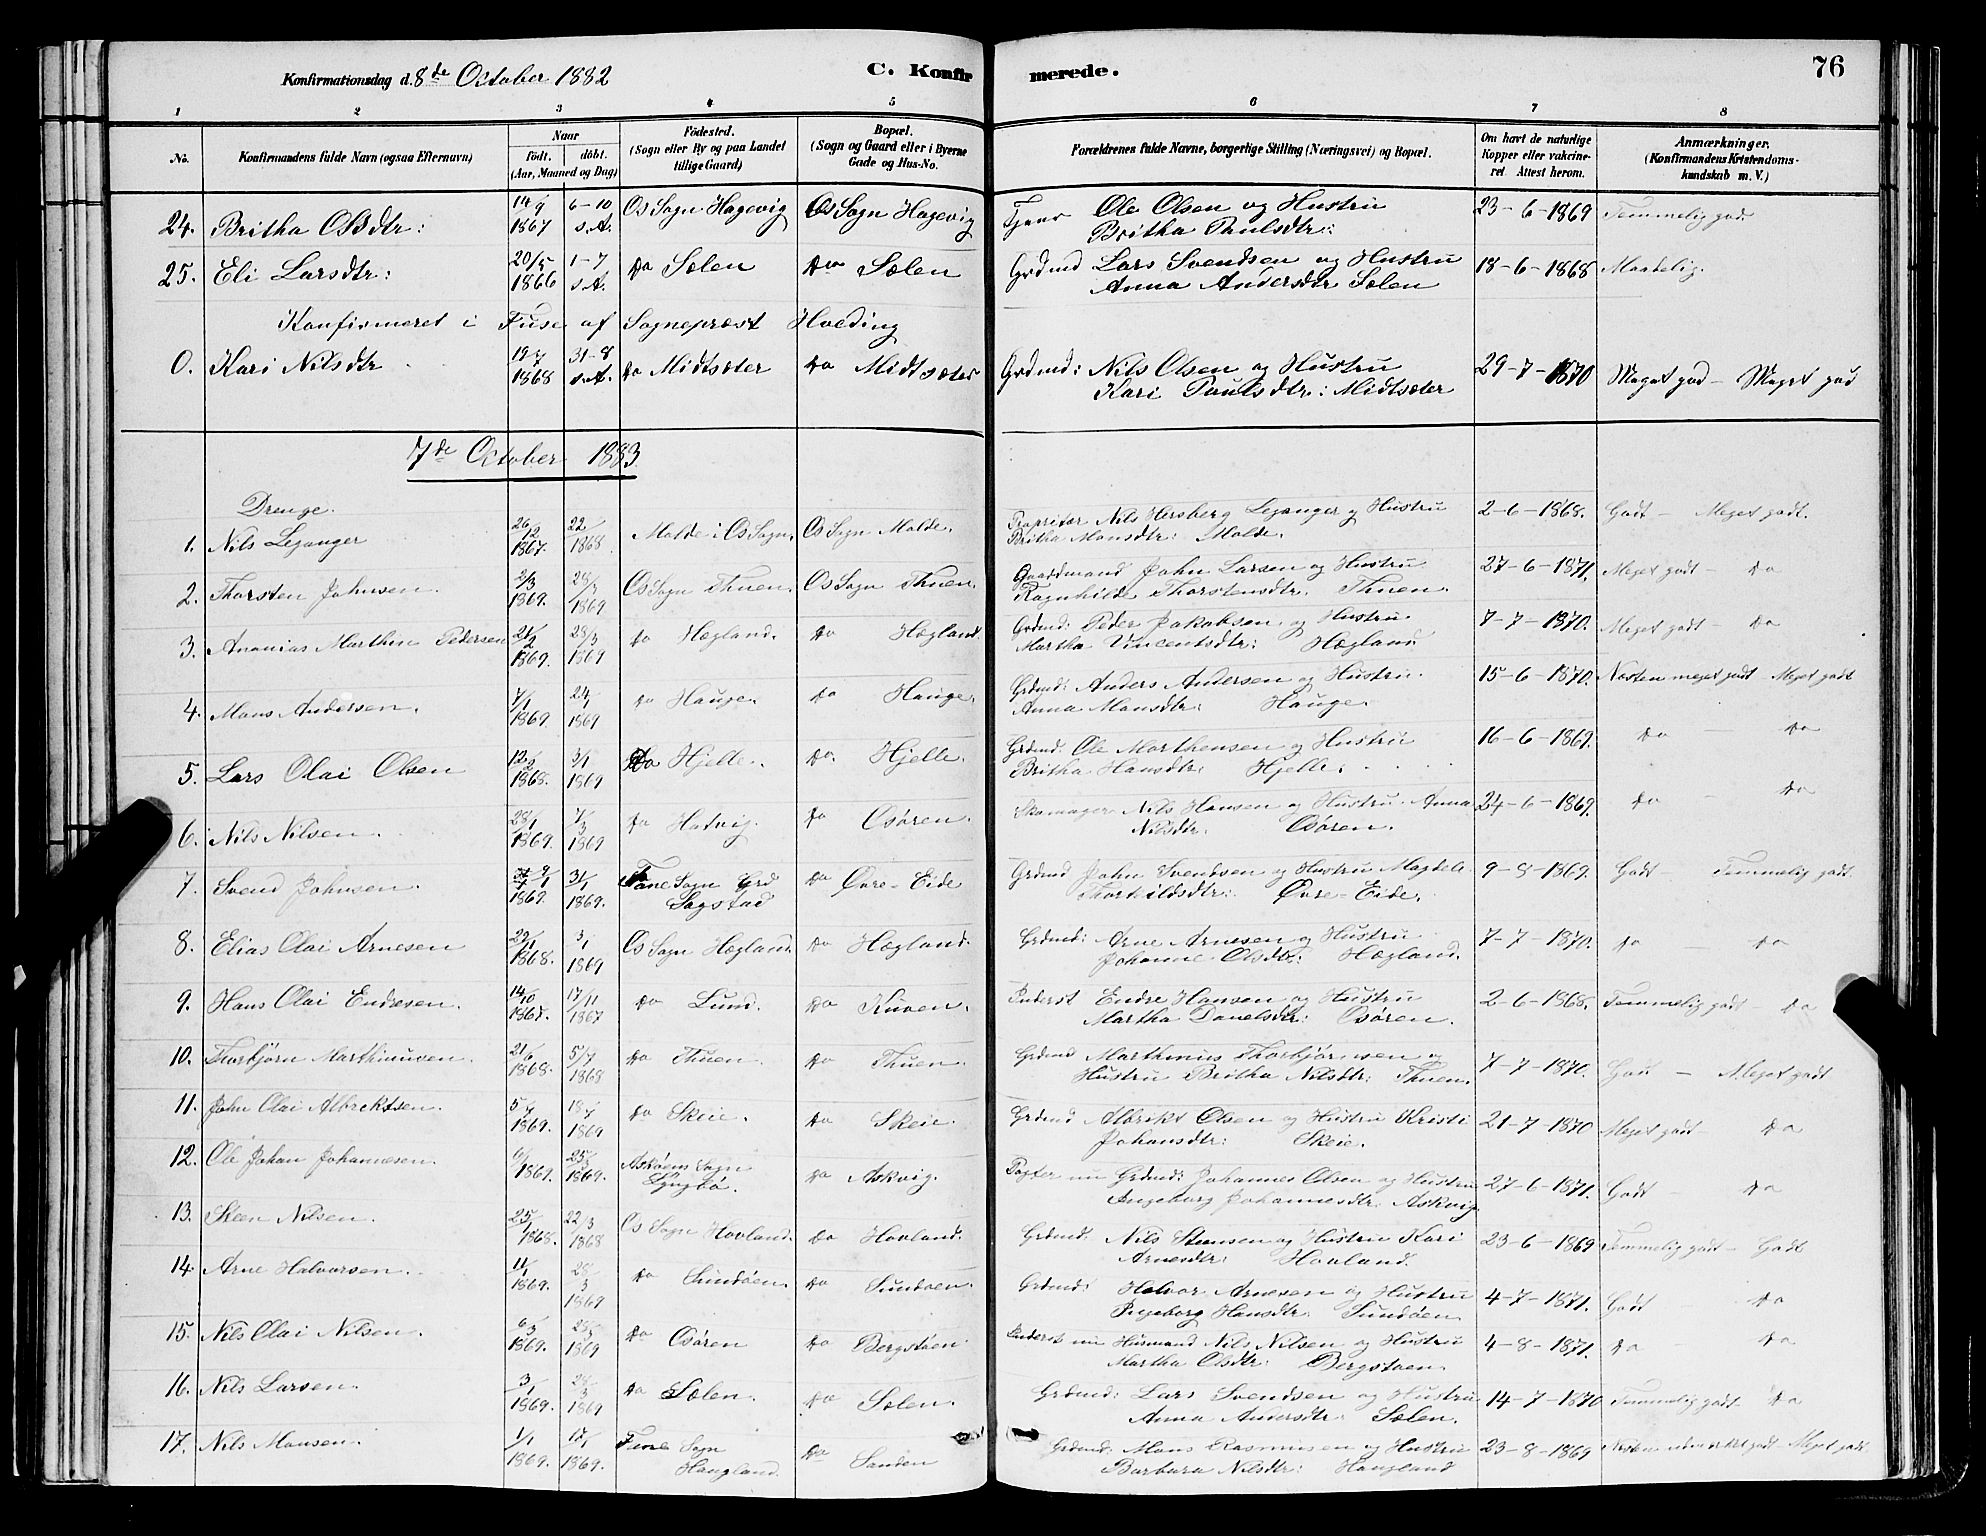 Konfirmationsdag d. 8de October 1882
C. Konfirmerede.
76
1 2 3 4 5 6 7 8
No.
Konfirmandens fulde Navn (ogsaa Efternavn)
Naar
født. døbt.
(Aar, Maaned og Dag)
Fødested.
(Sogn eller By og paa Landet
tillige Gaard)
Bopæl.
(Sogn og Gaard eller i Byerne
Gade og Hus-No.
Forældrenes fulde Navne, borgerlige Stilling (Næringsvei) og Bopæl.
Om havt de naturlige
Kopper eller vakcine-
ret Attest herom.
Anmærkninger.
(Konfirmandens Kristendoms-
kundskab m. V.)
24. Britha Olsdtr: 14/9 1867 6-10 s.A. Os Sogn Hagevig Os Sogn Hagevig Ole Olsen og Hustru 23-6-1869 Temmelig god
Britha Paulsdtr:
25. Eli Larsdtr: 20/5 1866 1-7 s.A. Do Sælen Do Sælen Grdmd Lars Svendsen og Hustru 18-6-1868 Maadelig.
Anna Andersdtr Sælen
Konfirmeret i Fuse af Sognepræst Hveding
0. Kari Nilsdtr 19/7 1868 31-8 s.A. Do Midtsæter Do Midtsæter Grdmd: Nils Olsen og Hustru 29-7-1870 Meget god - Meget god
Kari Paulsdtr: Midtsæter
7de October 1883
Drenge.
1. Nils Leganger 26/12 1867. 22/ 1868 Molde i Os Sogn. Os Sogn Molde. Propritær Nils Hersberg Leganger og Hustru 2-6-1868. Godt - Meget godt.
Britha Monsdtr: Molde.
2. Thorsten Johnsen. 2/3 1869. 28/3 1869 Os Sogn Thuen. Os Sogn Thuen. Gaardmand John Larsen og Hustru 27-6-1871. Meget godt - Do
Ragnhilde Thorstensdtr. Thuen.
3. Ananias Marthin Pedersen 21/2 1869. 28/3 1869 Do Hægland. Do Hægland. Grdmd: Peder Jakobsen og Hustru 7-7-1870. Meget godt - Do
Martha Vincentsdtr: Hægland
4. Mons Andersen. 7/1 1869. 24/1 1869 Do Hauge. Do Hauge. Grdmd: Anders Andersen og Hustru. 15-6-1870. Næsten meget godt - Meget godt
Anna Monsdtr: Hauge.
5. Lars Olai Olsen 12/2 1868. 3/1 1869 Do Hjelle. Do. Hjelle. Grdmd: Ole Marthensen og Hustru 16-6-1869. Do - Do
Britha Hansdtr: Hjelle.
6. Nils Nilsen. 28/1 1869. 7/3 1869 Do Hatvig. Do Osøren. Skomager Nils Hansen og Hustru Anna 24-6-1869. Do - Do
Nilsdtr. Osøren.
7. Svend Johnsen. 9/1 1869. 31/1 1869. Fane Sogn Grd Do Øvre-Eide Grdmd John Svendsen og Hustru Magdeli 9-8-1869. Godt - Temmelig godt.
Sagstad Thorkildsdtr: Øvre-Eide.
8. Elias Olai Arnesen 29/1 1868. 3/1 1869 Os Sogn Hægland. Do Hægland. Grdmd: Arne Arnesen og Hustru 7-7-1870. Do - Do
Johanne Olsdtr: Hægland.
9. Hans Olai Endresen. 14/10 1867. 17/11 1867 Do Lund. Do Kuven. Inderst Endre Hansen og Hustru 2-6-1868. Temmelig godt Do
Martha Danelsdtr: Osøren.
10. Thorbjørn Marthinusen. 21/6 1868. 5/7 1868 Do Thuen. Do Thuen. Grdmd Marthinus Thorbjørnsen og 7-7-1870. Godt - Meget godt
Hustru Britha Nilsdtr: Thuen.
11. John Olai Albrektsen. 5/4 1869. 18/4 1869 Do Skeie. Do Skeie. Grdmd Albrikt Olsen og Hustru Kristi 21-7-1870 Meget godt - Do
Johansdtr: Skeie.
12. Ole Johan Johannesen. 1869. 1869. Askøens Sogn Do Askvig. nu Grdmd: Johannes Olsen og Hustru 27-6-1871. Godt - Do
Lyngbø. Ingeborg Johannesdtr. Askvig
13. Steen Nilsen. 25/ 1868. 22/3 1868 Os Sogn Hovland. Do Hovland. Grdmd. Nils Stensen og Hustru Kari 23-6-1869 Temmelig godt - Godt
Arnesdtr: Hovland.
14 Arne Halvorsen. 11/1 1869. 28/3 1869 Do Sundøen. Do Sundøen. Grdmd: Halvor Arnesen og Hustru 4-7-1871. Godt Do
Ingeborg Hansdtr. Sundøen
15. Nils Olai Nilsen. 6/3 1869. 1869 Do Osøren Do Bergstøen Inderst nu Husmand Nils Nilsen og Hustru 4-8-1871. Do Do
Martha Olsdtr: Bergstøen
16. Nils Larsen. 3/1 1869. 28/3 1869 Do Sælen. Do Sælen. Grdmd: Lars Svendsen og Hustru 14-7-1870 Temmelig godt Do
Anna Andersdtr: Sælen.
17. Nils Monsen. 1/1 1869. 17/1 1869. Fane Sogn Do Sanden Grdmd: Mons Rasmusen og Hustru 23-8-1869 Meget godt.
Haugland. Barbara Nilsdtr: Haugland